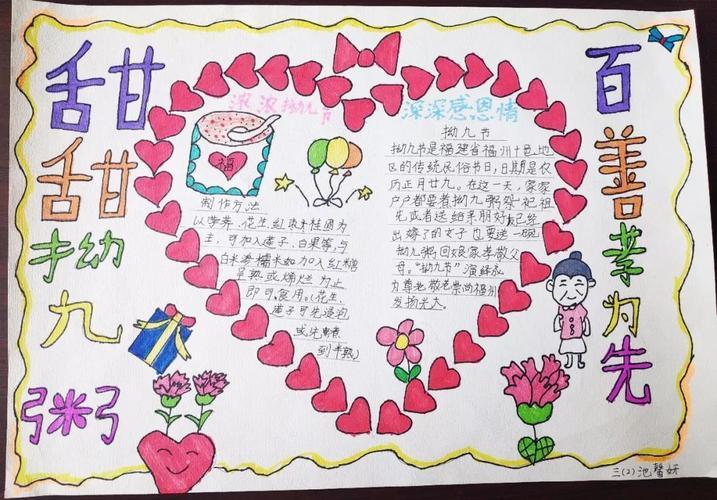 甜甜拗九粥
浓浓拗九节
深深感恩情
福
制作方法
以荸荠、花生、红枣、桂圆为
主，可加入莲子、白果等，与
白米、糯米如加入红糖
至熟或烂为止
即可食用。（花生、
莲子可先浸泡
或先煮
到半熟）
拗九节
拗九节是福建省福州十邑地
区的传统民俗节日，日期是农
历正月廿九。在这一天，家家
户户都要煮拗九粥祭祀祖
先或者送给亲朋好友，已经
出嫁了的女子也要送一碗
拗九粥回娘家孝敬父
母。“拗九节”演绎成
为尊老、敬老崇尚福州
发扬光大。
百善孝为先
三（2）池馨妍